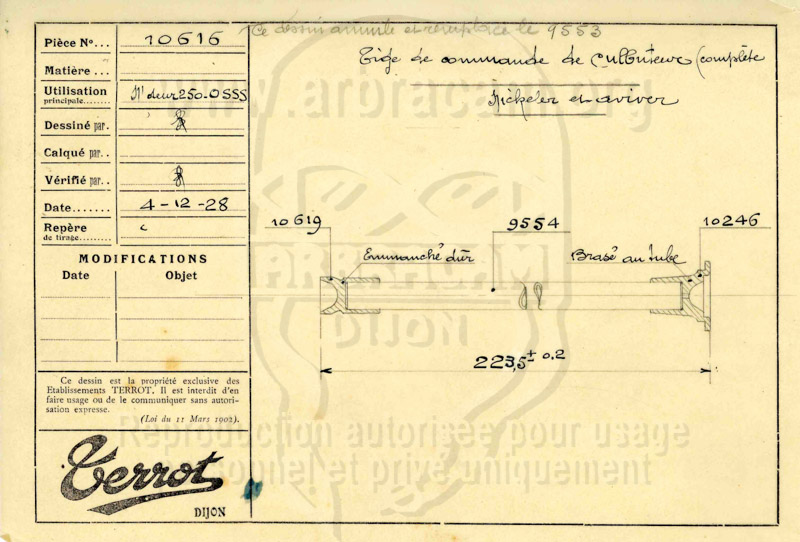 Ce dessin annule et remplace le 9553
Pièce Nº... 10616
Matière...
Utilisation
principale........ Mr deur 250-OSSS
Dessiné par.
Calqué par..
Vérifié par..
Date....... 4-12-28
Repère
de tirage.. c
MODIFICATIONS
Date Objet
Ce dessin est la propriété exclusive des
Etablissements TERROT. Il est interdit d'en
faire usage ou de le communiquer sans autori-
sation expresse.
(Loi du 11 Mars 1902).
Terrot
DIJON
Tige de commande de culbuteurs (complète
Nickeler et aviver
10619 9554 10246
Emmanché dur Brasé au tube
223,5 ± 0.2
www.arbracam.org
ARBRACAM
DIJON
Reproduction autorisée pour usage
personnel et privé uniquement